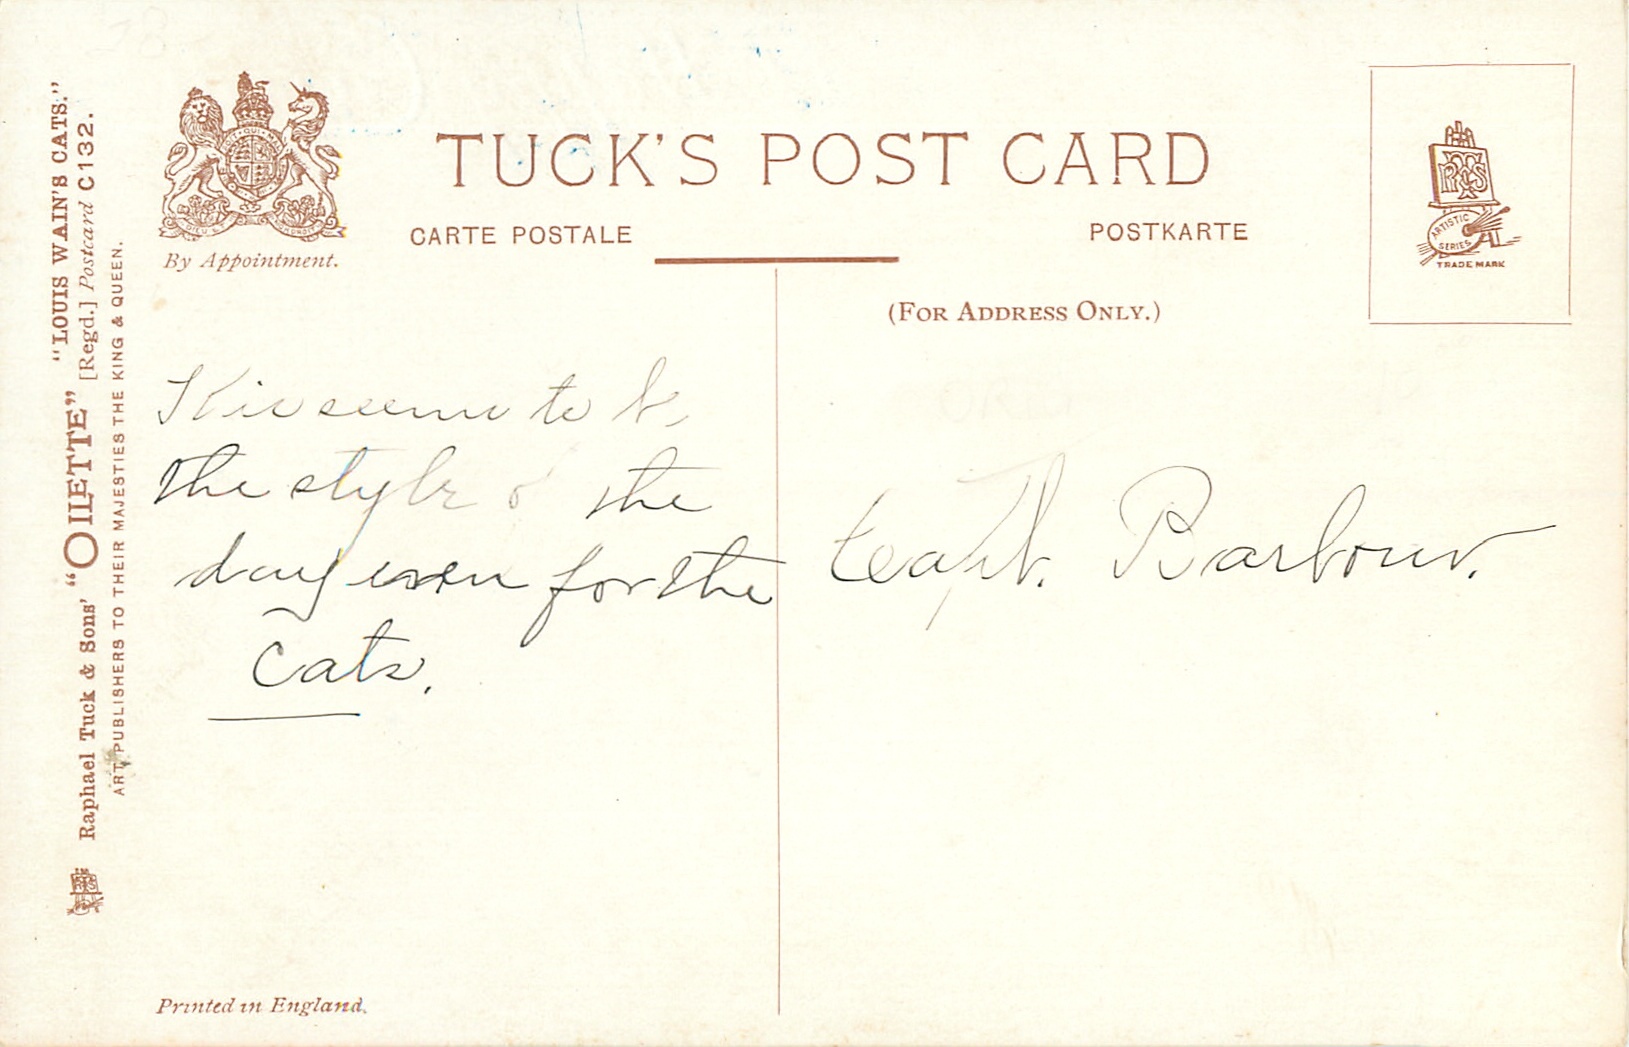 "LOUIS WAIN'S CATS."
Raphael Tuck & Sons' "OILETTE" [Regd.] Postcard C132.
ART PUBLISHERS TO THEIR MAJESTIES THE KING & QUEEN.
By Appointment.
TUCK'S POST CARD
CARTE POSTALE
POSTKARTE
(FOR ADDRESS ONLY.)
ARTISTIC
SERIES
TRADE MARK
seems to be
the style of the
day even for the
cats.
Capt. Barbour.
Printed in England.